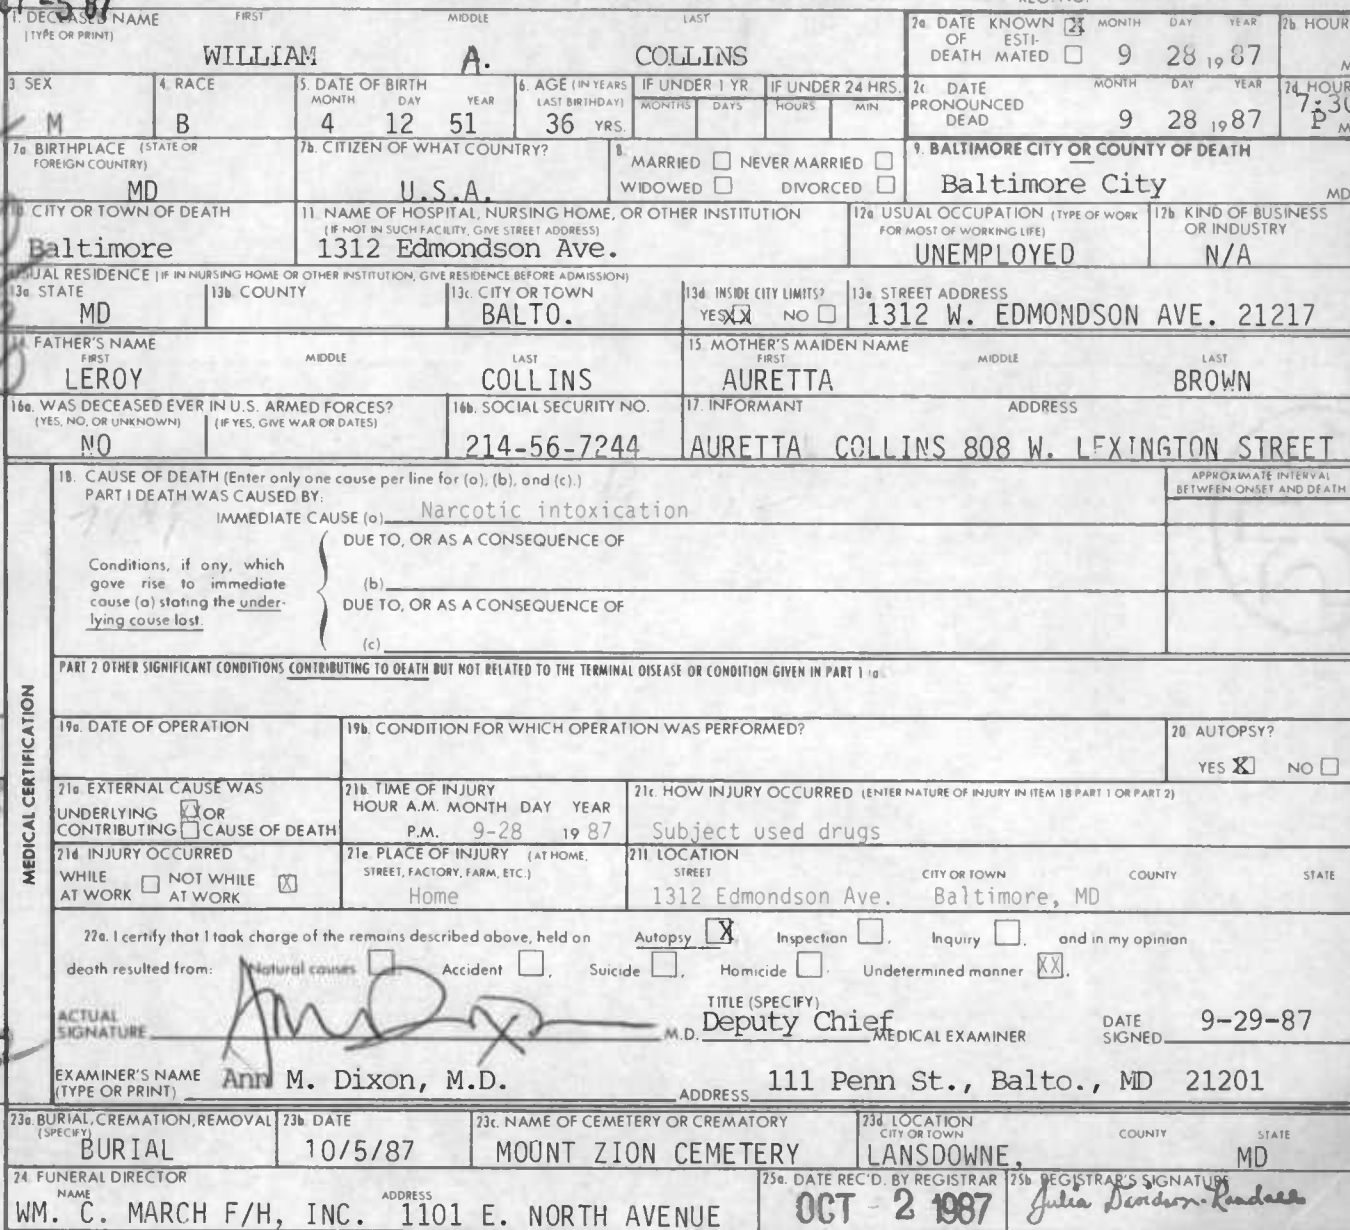 1. DECEASED NAME FIRST MIDDLE LAST
(TYPE OR PRINT)
WILLIAM A. COLLINS
2a. DATE KNOWN [X] MONTH DAY YEAR
OF ESTI-
DEATH MATED ☐ 9 28 1987
2b HOUR
M
3 SEX
M
4. RACE
B
5. DATE OF BIRTH
MONTH DAY YEAR
4 12 51
6. AGE (IN YEARS
LAST BIRTHDAY)
36 YRS.
IF UNDER 1 YR.
MONTHS DAYS
IF UNDER 24 HRS.
HOURS MIN
2c DATE MONTH DAY YEAR
PRONOUNCED
DEAD 9 28 1987
2d HOUR
7:30
P M
7a BIRTHPLACE (STATE OR
FOREIGN COUNTRY)
MD
7b. CITIZEN OF WHAT COUNTRY?
U.S.A.
8.
MARRIED ☐ NEVER MARRIED ☐
WIDOWED ☐ DIVORCED ☐
9. BALTIMORE CITY OR COUNTY OF DEATH
Baltimore City MD
10. CITY OR TOWN OF DEATH
Baltimore
11 NAME OF HOSPITAL, NURSING HOME, OR OTHER INSTITUTION
(IF NOT IN SUCH FACILITY, GIVE STREET ADDRESS)
1312 Edmondson Ave.
12a USUAL OCCUPATION (TYPE OF WORK
FOR MOST OF WORKING LIFE)
UNEMPLOYED
12b. KIND OF BUSINESS
OR INDUSTRY
N/A
USUAL RESIDENCE (IF IN NURSING HOME OR OTHER INSTITUTION, GIVE RESIDENCE BEFORE ADMISSION)
13a STATE
MD
13b. COUNTY
13c. CITY OR TOWN
BALTO.
13d INSIDE CITY LIMITS?
YES XX NO ☐
13e. STREET ADDRESS
1312 W. EDMONDSON AVE. 21217
14. FATHER'S NAME
FIRST MIDDLE LAST
LEROY COLLINS
15. MOTHER'S MAIDEN NAME
FIRST MIDDLE LAST
AURETTA BROWN
16a. WAS DECEASED EVER IN U.S. ARMED FORCES?
(YES, NO, OR UNKNOWN) (IF YES, GIVE WAR OR DATES)
NO
16b. SOCIAL SECURITY NO.
214-56-7244
17. INFORMANT ADDRESS
AURETTA COLLINS 808 W. LEXINGTON STREET
MEDICAL CERTIFICATION
18. CAUSE OF DEATH (Enter only one cause per line for (a), (b), and (c).)
PART I DEATH WAS CAUSED BY:
IMMEDIATE CAUSE (a) Narcotic intoxication
APPROXIMATE INTERVAL
BETWEEN ONSET AND DEATH
DUE TO, OR AS A CONSEQUENCE OF
Conditions, if any, which
gave rise to immediate
cause (a) stating the under-
lying cause last.
(b)
DUE TO, OR AS A CONSEQUENCE OF
(c)
PART 2 OTHER SIGNIFICANT CONDITIONS CONTRIBUTING TO DEATH BUT NOT RELATED TO THE TERMINAL DISEASE OR CONDITION GIVEN IN PART 1 (a)
19a. DATE OF OPERATION
19b. CONDITION FOR WHICH OPERATION WAS PERFORMED?
20 AUTOPSY?
YES [X] NO ☐
21a. EXTERNAL CAUSE WAS
UNDERLYING [XX] OR
CONTRIBUTING ☐ CAUSE OF DEATH
21b. TIME OF INJURY
HOUR A.M. MONTH DAY YEAR
P.M. 9-28 1987
21c. HOW INJURY OCCURRED (ENTER NATURE OF INJURY IN ITEM 18 PART 1 OR PART 2)
Subject used drugs
21d INJURY OCCURRED
WHILE ☐ NOT WHILE [X]
AT WORK AT WORK
21e PLACE OF INJURY (AT HOME,
STREET, FACTORY, FARM, ETC.)
Home
21f LOCATION
STREET CITY OR TOWN COUNTY STATE
1312 Edmondson Ave. Baltimore, MD
22a. I certify that I took charge of the remains described above, held on Autopsy [X] Inspection ☐, Inquiry ☐, and in my opinion
death resulted from: Natural causes ☐ Accident ☐, Suicide ☐, Homicide ☐. Undetermined manner [XX].
ACTUAL
SIGNATURE M.D.
TITLE (SPECIFY)
Deputy Chief MEDICAL EXAMINER
DATE
SIGNED 9-29-87
EXAMINER'S NAME
(TYPE OR PRINT) Ann M. Dixon, M.D.
ADDRESS 111 Penn St., Balto., MD 21201
23a. BURIAL, CREMATION, REMOVAL
(SPECIFY)
BURIAL
23b. DATE
10/5/87
23c. NAME OF CEMETERY OR CREMATORY
MOUNT ZION CEMETERY
23d. LOCATION
CITY OR TOWN COUNTY STATE
LANSDOWNE, MD
24. FUNERAL DIRECTOR
NAME ADDRESS
WM. C. MARCH F/H, INC. 1101 E. NORTH AVENUE
25a. DATE REC'D. BY REGISTRAR
OCT - 2 1987
25b. REGISTRAR'S SIGNATURE
Julia Davidson-Randall